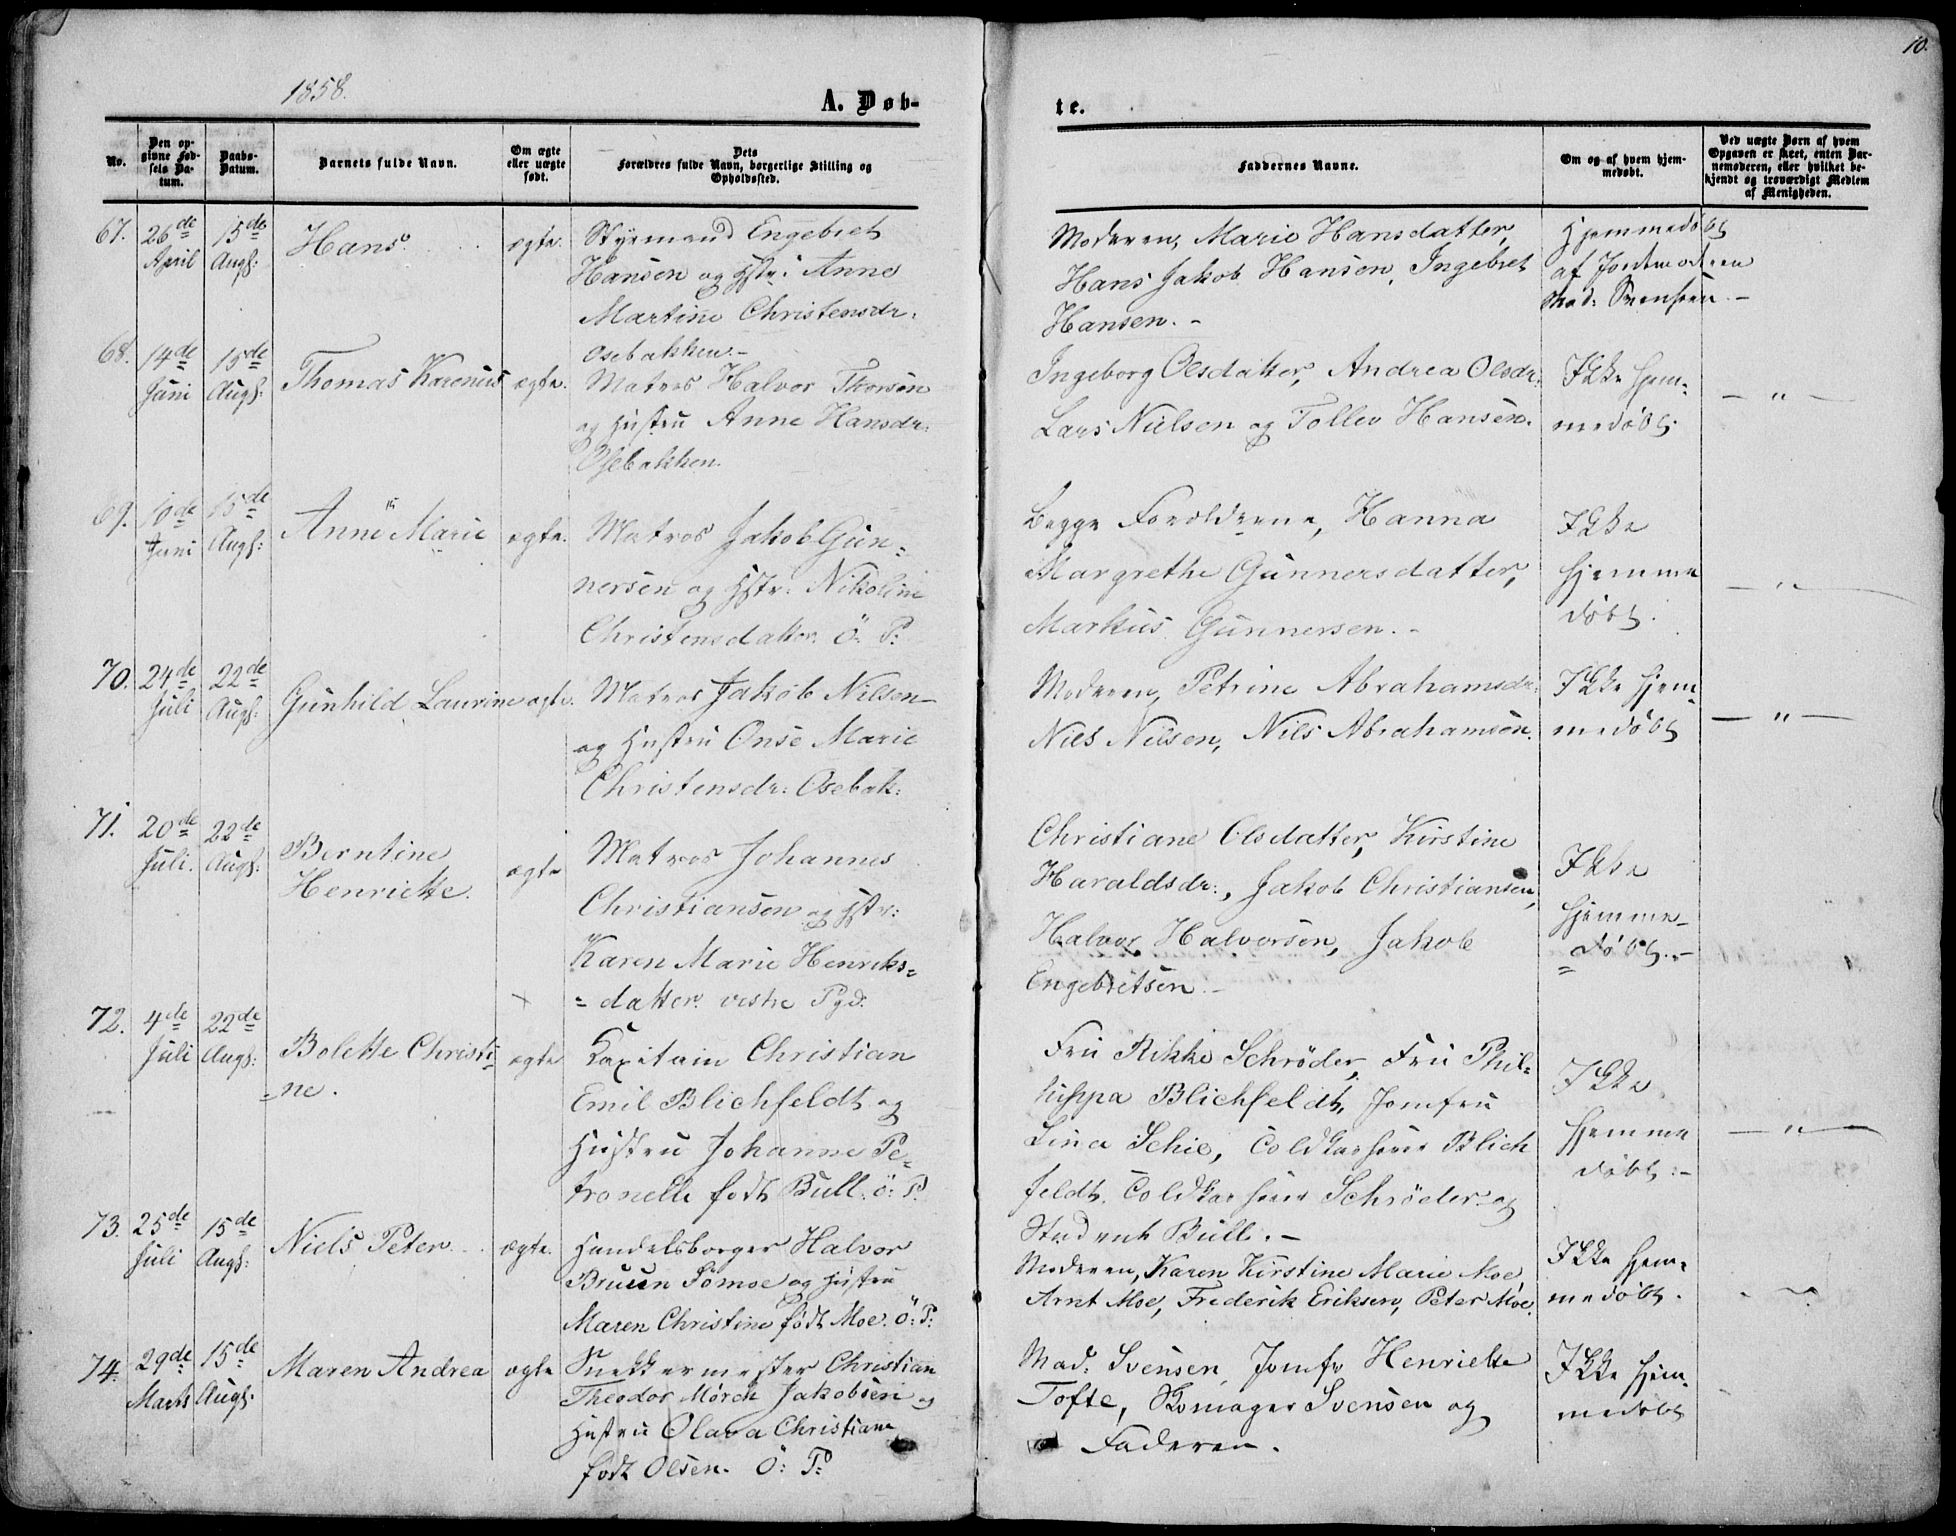 10.
1858.
A. Døb-
te.
No.
Den op-
givne Fød-
sels Da-
tum.
Daabs-
Datum.
Barnets fulde Navn.
Om ægte
eller uægte
født.
Dets
Forældres fulde Navn, borgerlige Stilling og
Opholdssted.
Faddernes Navne.
Om og af hvem hjem-
medøbt.
Ved uægte Børn af hvem
Opgaven er skeet, enten Bar-
nemoderen, eller hvilket be-
kjendt og troværdigt Medlem
af Menigheden.
67.
26de
April
15de
Augs:
Hans.
ægte.
Styrmand Engebret
Hansen og Hstr: Anne
Martine Christensdr.
Osebakken.-
Moderen, Marie Hansdatter,
Hans Jakob Hansen, Ingebret
Hansen.-
Hjemmedøbt
af Jordmoderen
Mad: Svensen.-
68.
14de
Juni
15de
Augs:
Thomas Karenius
ægte.
Matros Halvor Thorsen
og Hustru Anne Hansdr:
Osebakken.
Ingeborg Olsdatter, Andrea Olsdr.
Lars Nielsen og Tollev Hansen.
Ikke hjem-
medøbt.
- " -
69.
10de
Juni
15de
Augs:
Anne Marie
ægte.
Matros Jakob Gun-
nersen og Hstr: Nikoline
Christensdatter. Ö: P:
Begge Forældrene, Hanna
Margrethe Gunnersdatter,
Markus Gunnersen.-
Ikke
hjemme
døbt.
- " -
70.
24de
Juli
22de
Augs:
Gunhild Laurine
ægte.
Matros Jakob Nilsen
og Hustru Onse Marie
Christensdr: Osebak:
Moderen, Petrine Abrahamsdr.
Niels Nilsen, Nils Abrahamsen.
Ikke hjem
medøbt
- " -
71.
20de
Juli.
22de
Augs:
Berntine
Henriette.
ægte
Matros Johannes
Christiansen og Hstr:
Karen Marie Henriks=
=datter. vestre Pgd.
Christiane Olsdatter, Kirstine
Haraldsdr:, Jakob Christiansen,
Halvor Halvorsen, Jakob
Engebretsen.-
Ikke
hjemme-
=døbt.-
72.
4de
Juli
22de
Augs:
Bolette Christi-
-ne.
ægte
Kapitain Christian
Emil Blichfeldt og
Hustru Johanne Pe-
tronelle født Bull. ö: P.
Fru Rikke Schrøder, Fru Phil-
lippa Blichfeldt, Jomfru
Lina Schie, Toldkasserer Blich
feldt. Toldkasserer Schrøder og
Student Bull.-
Ikke
hjemme
døbt.-
- " -
73.
25de
Juli
15de
Augs:
Niels Peter.
ægte.
Handelsborger Halvor
Bruun Tømoe og Hustru
Maren Christine født Moe. Ö: P:
Moderen, Karen Kirstine Marie Moe,
Arnt Moe, Frederik Eriksen, Peter Moe.
Ikke hjem-
medøbt.
74.
29de
Marts
15de
Augs.
Maren Andrea
ægte
Snekkermester Christian
Theodor Mørch Jakobsen og
Hustru Olava Christiane
født Olsen. Ö: P:
Mad: Svensen, Jomfr Henriette
Tofte, Skomager Svensen og
Faderen.
Ikke hjem-
medøbt